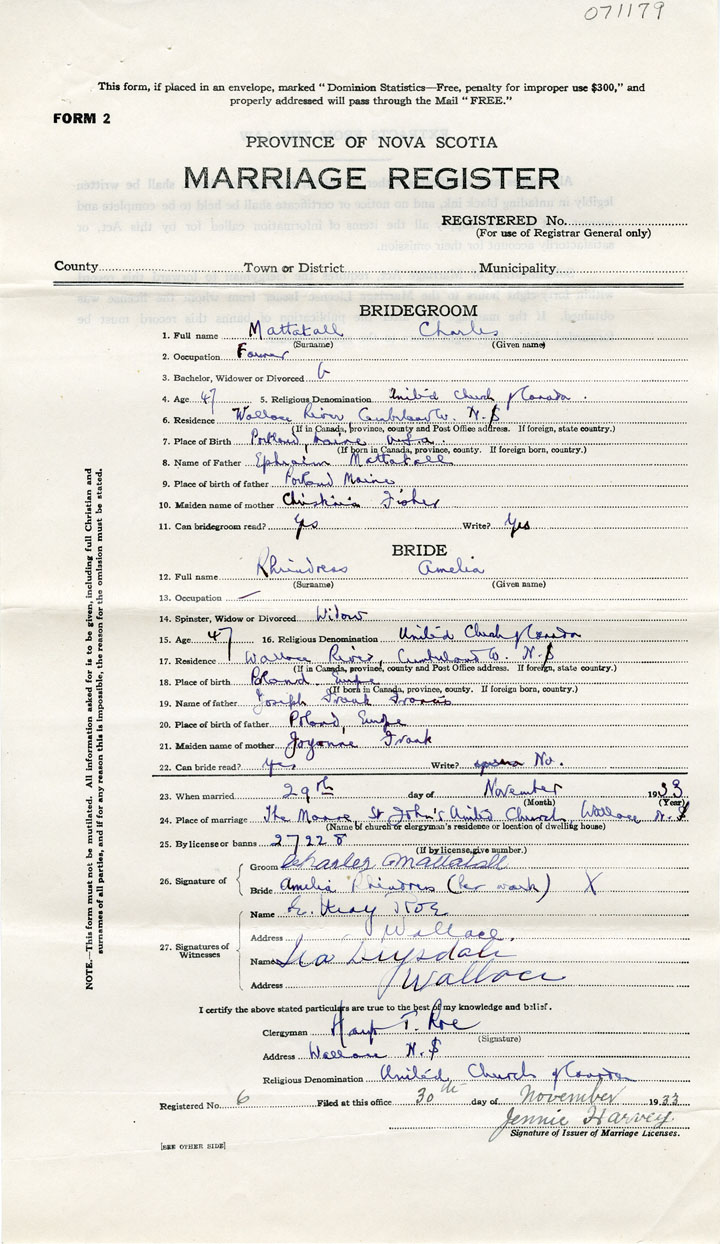 071179
This form, if placed in an envelope, marked "Dominion Statistics—Free, penalty for improper use $300," and
properly addressed will pass through the Mail "FREE."
FORM 2
PROVINCE OF NOVA SCOTIA
MARRIAGE REGISTER
REGISTERED No.
(For use of Registrar General only)
County Town or District Municipality
BRIDEGROOM
1. Full name Mattatall Charles
(Surname) (Given name)
2. Occupation Farmer
3. Bachelor, Widower or Divorced B
4. Age 47 5. Religious Denomination United Church of Canada.
6. Residence Wallace River Cumberland Co. N.S
(If in Canada, province, county and Post Office address. If foreign, state country.)
7. Place of Birth Portland, Maine U.S.a.
(If born in Canada, province, county. If foreign born, country.)
8. Name of Father Ephraim Mattatall
9. Place of birth of father Portland Maine
10. Maiden name of mother Christinia Fisher
11. Can bridegroom read? Yes Write? Yes
BRIDE
12. Full name Rhindress Amelia
(Surname) (Given name)
13. Occupation —
14. Spinster, Widow or Divorced Widow
15. Age 47 16. Religious Denomination United Church of Canada
17. Residence Wallace River, Cumberland Co. N.S
(If in Canada, province, county and Post Office address. If foreign, state country.)
18. Place of birth Poland Europe
(If born in Canada, province, county. If foreign born, country.)
19. Name of father Joseph Frank
20. Place of birth of father Poland, Europe
21. Maiden name of mother Frank
22. Can bride read? yes Write? No.
23. When married 29th day of November 1933
(Month) (Year)
24. Place of marriage The Manse, St John's United Church, Wallace N.S
(Name of church or clergyman's residence or location of dwelling house)
25. By license or banns 27228
(If by license, give number.)
26. Signature of
Groom Charles Mattatall
Bride Amelia Rhindress (her mark) X
27. Signatures of
Witnesses
Name Roe
Address Wallace.
Name Drysdale
Address Wallace
I certify the above stated particulars are true to the best of my knowledge and belief.
Clergyman T. Roe
(Signature)
Address Wallace N.S
Religious Denomination United Church of Canada
Registered No. 6 Filed at this office 30th day of November 1933
Jennie Harvey
Signature of Issuer of Marriage Licenses.
[SEE OTHER SIDE]
NOTE.—This form must not be mutilated. All information asked for is to be given, including full Christian and
surnames of all parties, and if for any reason this is impossible, the reason for the omission must be stated.